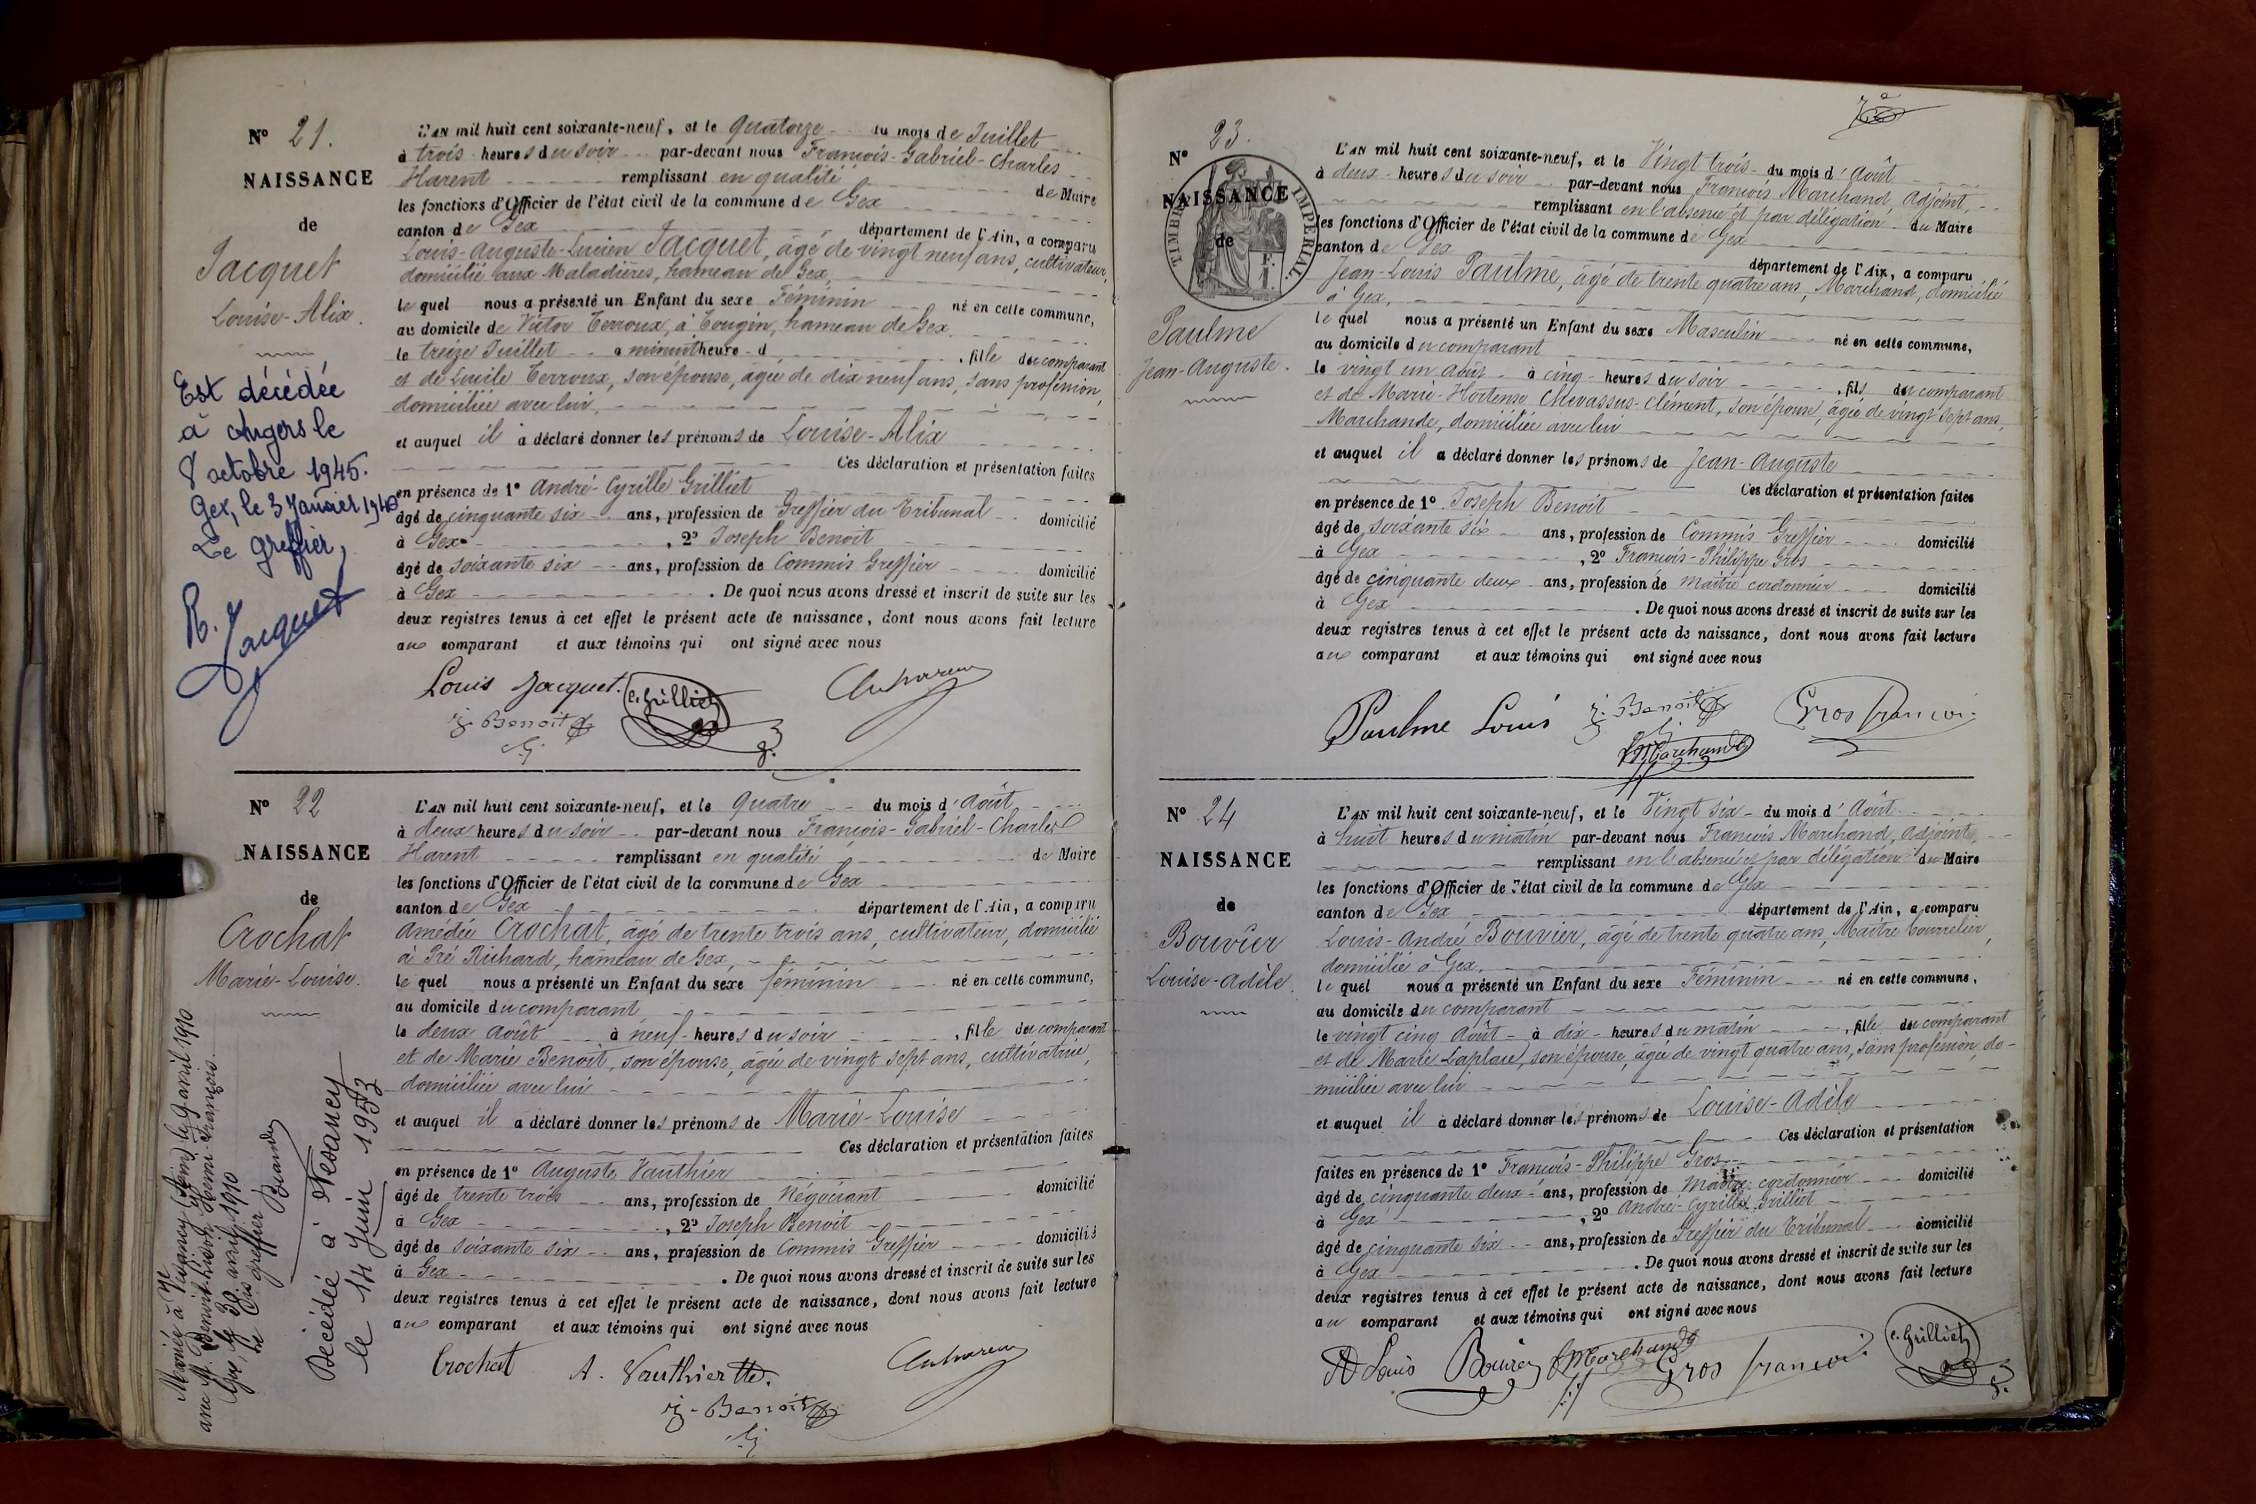 N° 21.
NAISSANCE
de
Jacquet
Louise-Alix.
Est décédée
à Angers le
8 octobre 1945.
Gex, le 3 Janvier 1946
Le greffier,
R. Jacquet
L'AN mil huit cent soixante-neuf, et le Quatorze du mois de Juillet
à trois heures du soir par-devant nous François-Gabriel-Charles
Harent remplissant en qualité de Maire
les fonctions d'Officier de l'état civil de la commune de Gex
canton de Gex département de l'Ain, a comparu
Louis-Auguste-Lucien Jacquet, âgé de vingt neuf ans, cultivateur,
domicilié aux Maladières, hameau de Gex,
le quel nous a présenté un Enfant du sexe Féminin né en cette commune,
au domicile de Victor Terroux, à Tougin, hameau de Gex
le treize Juillet a minuit heure d , fille du comparant
et de Lucile Terroux, son épouse, âgée de dix neuf ans, sans profession,
domiciliée avec lui,
et auquel il a déclaré donner les prénoms de Louise-Alix
Ces déclaration et présentation faites
en présence de 1° André-Cyrille Grilliet
âgé de cinquante six ans, profession de Greffier du Tribunal domicilié
à Gex , 2° Joseph Benoit
âgé de soixante six ans, profession de Commis Greffier domicilié
à Gex . De quoi nous avons dressé et inscrit de suite sur les
deux registres tenus à cet effet le présent acte de naissance, dont nous avons fait lecture
au comparant et aux témoins qui ont signé avec nous
Louis Jacquet. C. Grilliet
j. Benoit
N° 22
NAISSANCE
de
Crochat
Marie-Louise.
Mariée à Vesancy (Ain) le 9 avril 1910
Gex, le 30 avril 1910
Décédée à Vesancy
le 14 Juin 1953
L'AN mil huit cent soixante-neuf, et le Quatre du mois d'Août
à deux heures du soir par-devant nous François-Gabriel-Charles
Harent remplissant en qualité de Maire
les fonctions d'Officier de l'état civil de la commune de Gex
canton de Gex département de l'Ain, a comparu
Amédée Crochat, âgé de trente trois ans, cultivateur, domicilié
à Pré Richard, hameau de Gex,
le quel nous a présenté un Enfant du sexe féminin né en cette commune,
au domicile du comparant
le deux Août à neuf heures du soir , fille du comparant
et de Marie Benoit, son épouse, âgée de vingt sept ans, cultivatrice,
domiciliée avec lui
et auquel il a déclaré donner les prénoms de Marie-Louise
Ces déclaration et présentation faites
en présence de 1° Auguste Vauthier
âgé de trente trois ans, profession de Négociant domicilié
à Gex , 2° Joseph Benoit
âgé de soixante six ans, profession de Commis Greffier domicilié
à Gex . De quoi nous avons dressé et inscrit de suite sur les
deux registres tenus à cet effet le présent acte de naissance, dont nous avons fait lecture
au comparant et aux témoins qui ont signé avec nous
Crochat A. Vauthier
j. Benoit
N° 23.
NAISSANCE
de
TIMBRE IMPERIAL.
Paulme
Jean-Auguste.
L'AN mil huit cent soixante-neuf, et le Vingt trois du mois d'Août
à deux heures du soir par-devant nous François Marchand, Adjoint,
remplissant en l'absence et par délégation du Maire
les fonctions d'Officier de l'état civil de la commune de Gex
canton de Gex département de l'Ain, a comparu
Jean-Louis Paulme, âgé de trente quatre ans, Marchand, domicilié
à Gex,
le quel nous a présenté un Enfant du sexe Masculin né en cette commune,
au domicile du comparant
le vingt un Août à cinq heures du soir , fils du comparant
et de Marie-Hortense Chevassus-Clément, son épouse, âgée de vingt sept ans,
Marchande, domiciliée avec lui
et auquel il a déclaré donner les prénoms de Jean-Auguste
Ces déclaration et présentation faites
en présence de 1° Joseph Benoit
âgé de soixante six ans, profession de Commis Greffier domicilié
à Gex , 2° François-Philippe Gros
âgé de cinquante deux ans, profession de Maître cordonnier domicilié
à Gex . De quoi nous avons dressé et inscrit de suite sur les
deux registres tenus à cet effet le présent acte de naissance, dont nous avons fait lecture
au comparant et aux témoins qui ont signé avec nous
Paulme Louis j. Benoit Gros françois
fMarchand
N° 24
NAISSANCE
de
Bouvier
Louise-Adèle.
L'AN mil huit cent soixante-neuf, et le Vingt six du mois d'Août
à huit heures du matin par-devant nous François Marchand, Adjoint,
remplissant en l'absence et par délégation du Maire
les fonctions d'Officier de l'état civil de la commune de Gex
canton de Gex département de l'Ain, a comparu
Louis-André Bouvier, âgé de trente quatre ans, Maître bourrelier,
domicilié à Gex,
le quel nous a présenté un Enfant du sexe Féminin né en cette commune,
au domicile du comparant
le vingt cinq Août à dix heures du matin , fille du comparant
et de Marie Laplace, son épouse, âgée de vingt quatre ans, sans profession, do-
miciliée avec lui
et auquel il a déclaré donner les prénoms de Louise-Adèle
Ces déclaration et présentation
faites en présence de 1° François-Philippe Gros
âgé de cinquante deux ans, profession de Maître cordonnier domicilié
à Gex , 2° André-Cyrille Grilliet
âgé de cinquante six ans, profession de Greffier du Tribunal domicilié
à Gex . De quoi nous avons dressé et inscrit de suite sur les
deux registres tenus à cet effet le présent acte de naissance, dont nous avons fait lecture
au comparant et aux témoins qui ont signé avec nous
Louis Bouvier fMarchand Gros françois C. Grilliet